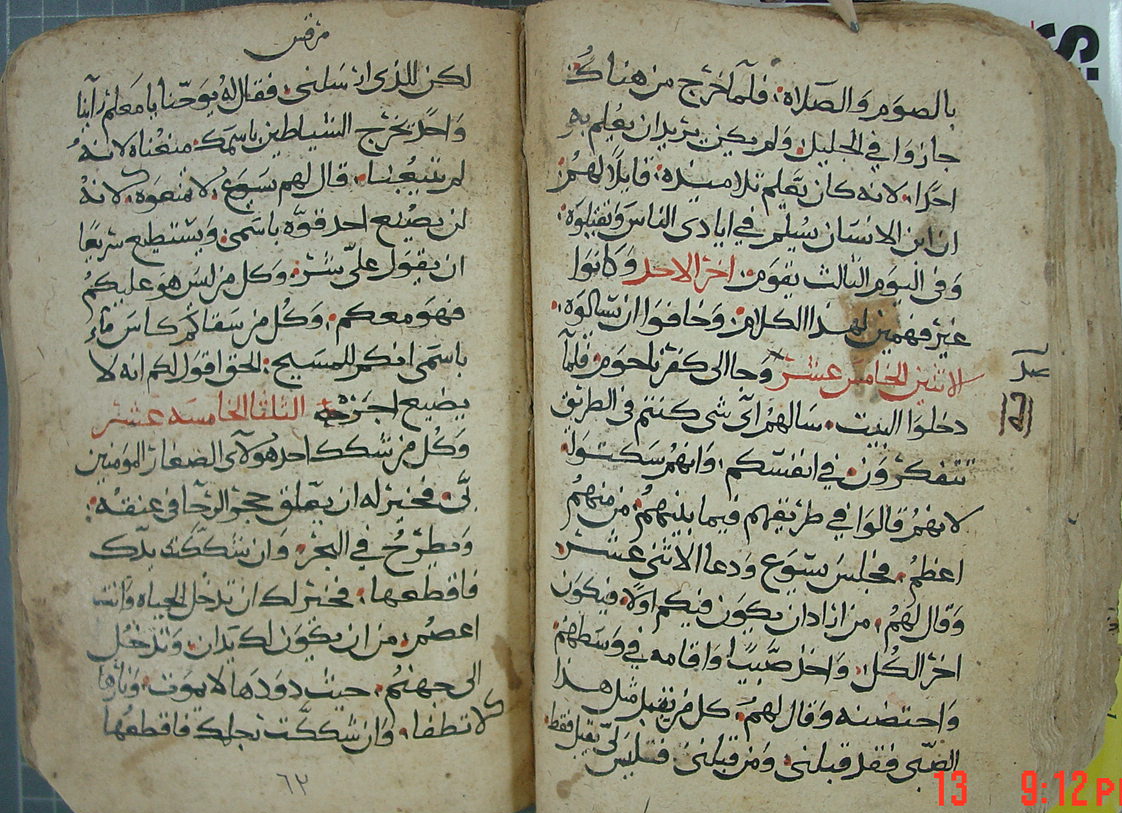 بالصوم والصلاة؛ فلما خرج من هناك
جازوا في الجليل. ولم يكن يريد ان يعلم به
احدا. لانه كان يعلم تلاميذه. قايلا لهم:
ان ابن الانسان يسلم في ايادي الناس ويقتلوه:
وفي اليوم الثالث يقوم. اخر الاحد وكانوا
غير فهمين لهذا الكلام. وخافوا ان يسالوه:
الاثنين الخامس عشر وجا الى كفرناحوم. فلما
دخلوا البيت. سالهم اي شي كنتم في الطريق
تتفكرون. في انفسكم. وانهم سكتوا.
لانهم قالوا في طريقهم فيما بينهم. من منهم
اعظم. فجلس يسوع ودعا الاثني عشر.
وقال لهم. من اراد ان يكون فيكم اولا. فيكون
اخر الكل. واخذ صبيا واقامه في وسطهم
واحتضنه وقال لهم. كل من يقبل مثل هذا
الصبي فقد قبلني. ومن قبلني. فليس لي يقبل فقط
مرقس
لكن الذي ارسلني. فقال له يوحنا يا معلم راينا
واحد يخرج الشياطين باسمك. منعناه لانه
لم يتبعنا. قال لهم يسوع. لا تمنعوه. لانه
لن يصنع احد قوه باسمي. ويستطيع سريعا
ان يقول علي شر. وكل من ليس هو عليكم
فهو معكم. وكل من سقاكم كاس ماء
باسمي انكم للمسيح. الحق اقول لكم انه لا
يضيع اجره الثلثا الخامسه عشر
وكل من شكك احد هولاي الصغار المومنين
بي. فخير له ان يعلق حجر الرحا في عنقه:
ويطرح في البحر. وان شككته يدك
فاقطعها. فخير لك ان تدخل الحياه وانت
اعصم. من ان يكون لك يدان. وتدخل
الى جهنم. حيث دودها لا يموت. ونارها
لا تطفا. وان شككت رجلك فاقطعها
٦٣
13 9:12 P